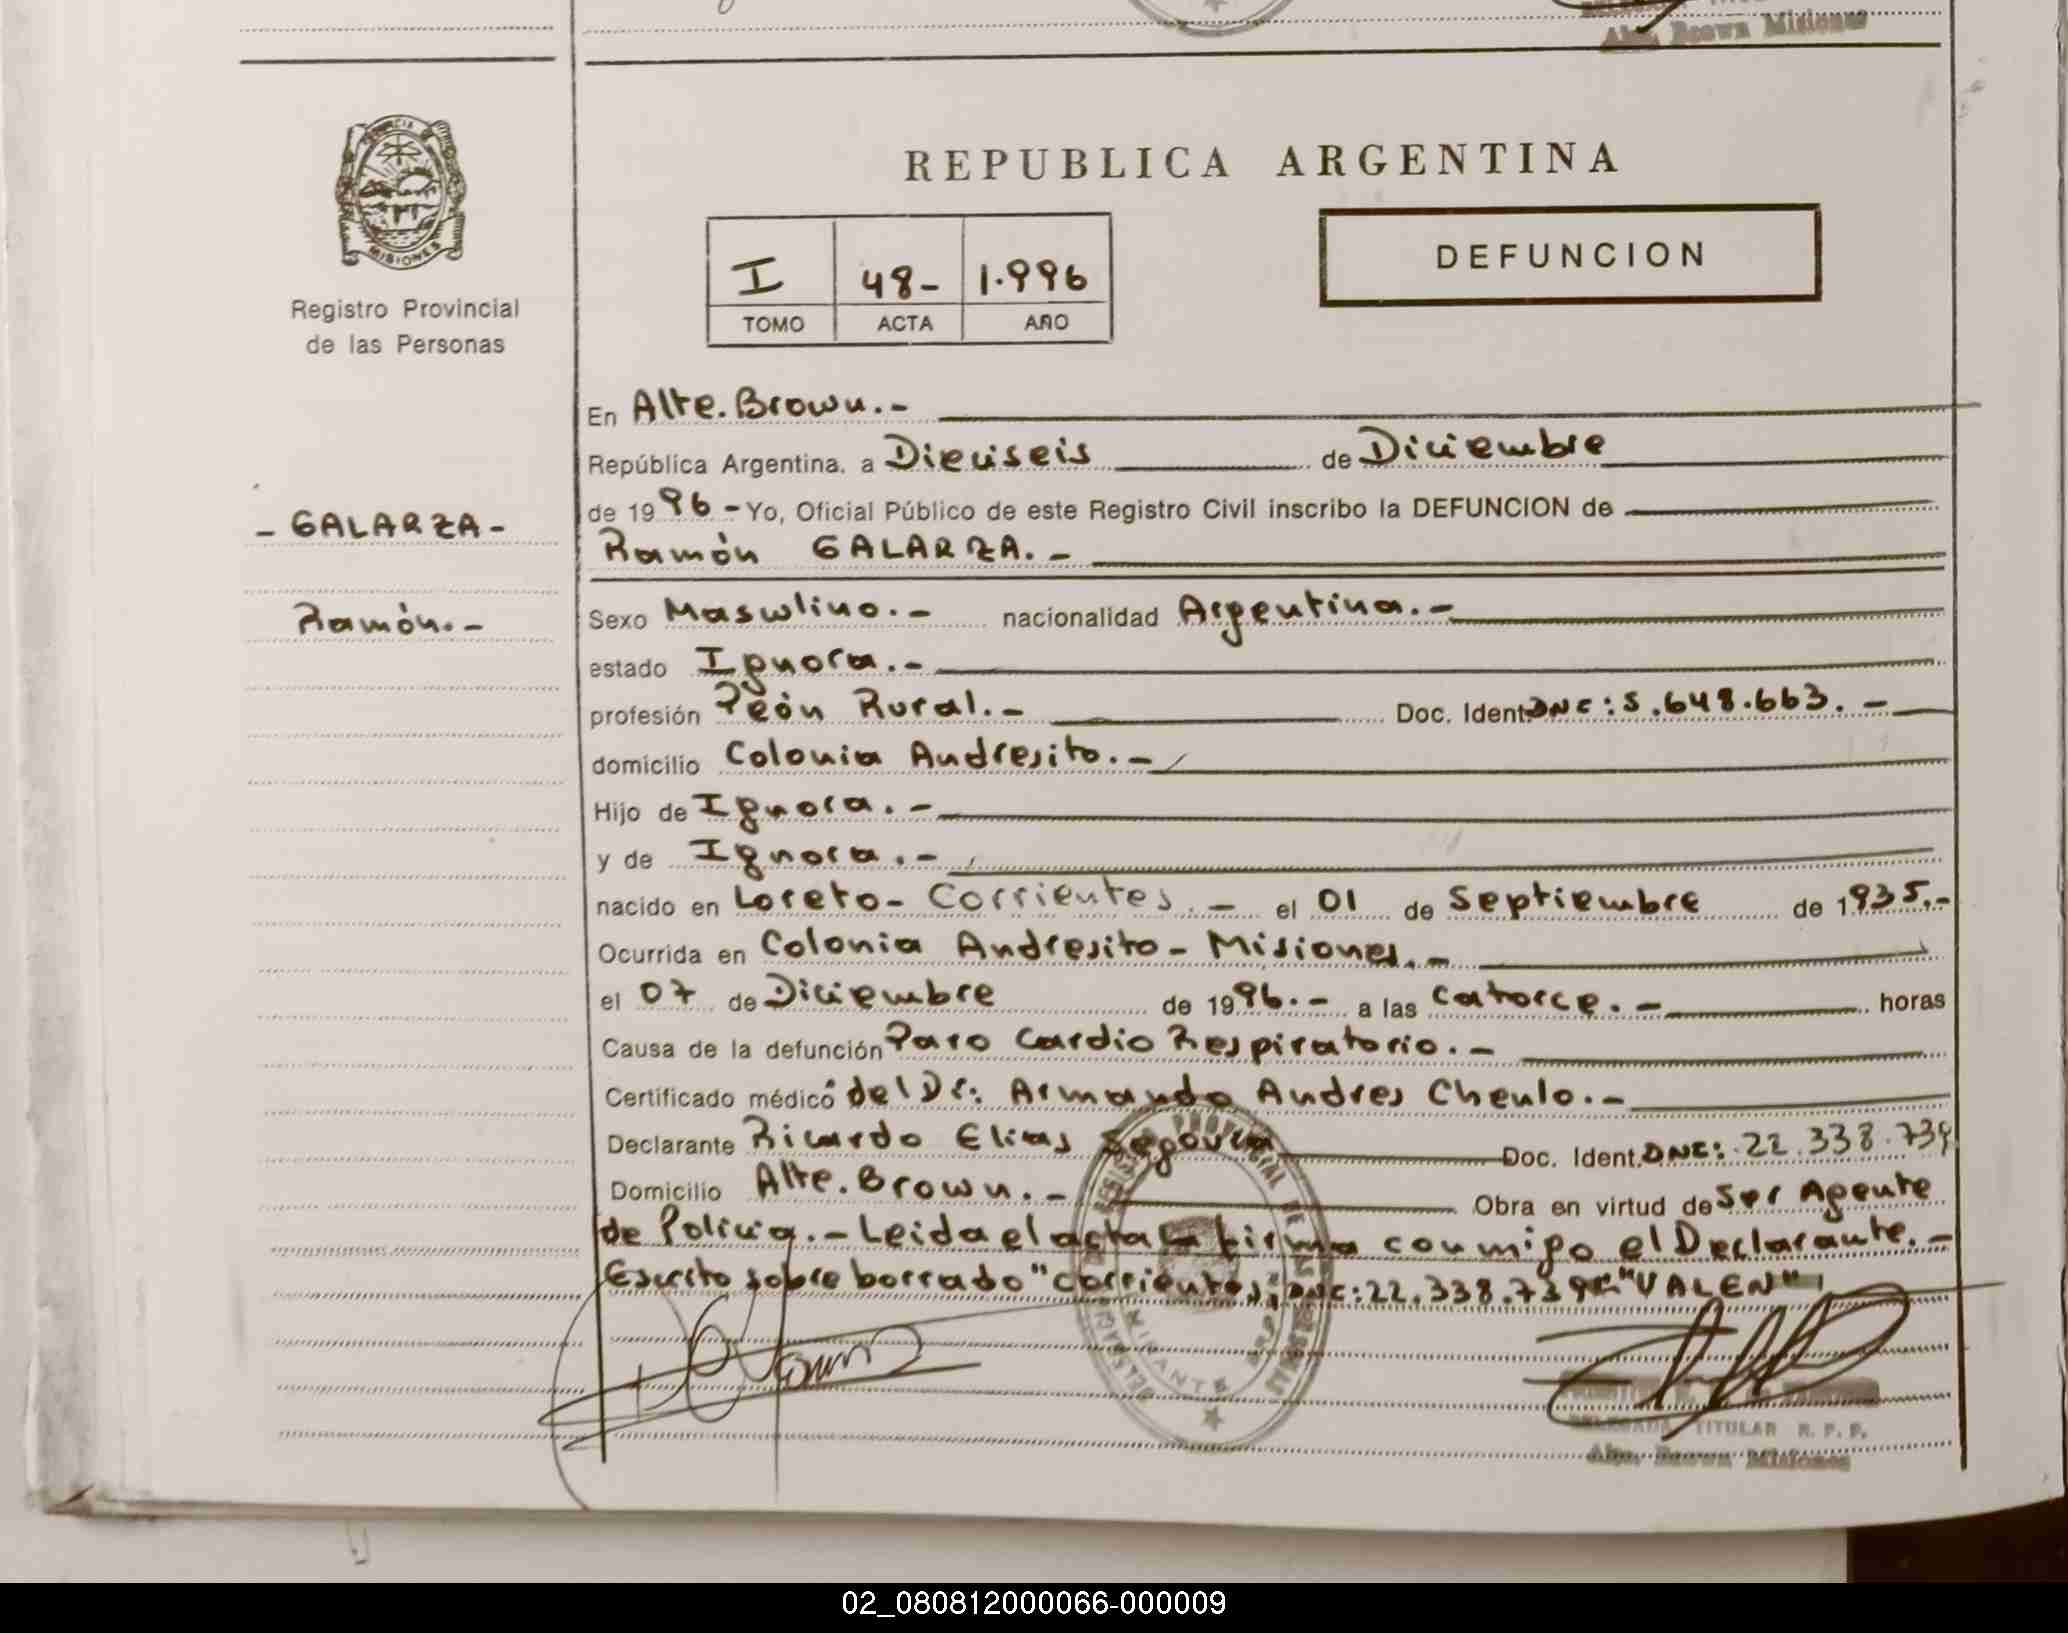 Alte. Brown Misiones
PROVINCIA DE
MISIONES
Registro Provincial
de las Personas
REPUBLICA ARGENTINA
I 48- 1.996
TOMO ACTA AÑO
DEFUNCION
En Alte. Brown.-
República Argentina, a Dieciseis de Diciembre
de 1996 - Yo, Oficial Público de este Registro Civil inscribo la DEFUNCION de
- GALARZA -
Ramón GALARZA.-
Ramón.-
Sexo Masculino.- nacionalidad Argentina.-
estado Ignora.-
profesión Peón Rural.- Doc. Ident. DNC: 5.648.663.-
domicilio Colonia Andresito.-
Hijo de Ignora.-
y de Ignora.-
nacido en Loreto- Corrientes.- el 01 de Septiembre de 1935.-
Ocurrida en Colonia Andresito - Misiones.-
el 07 de Diciembre de 1996.- a las catorce.- horas
Causa de la defunción Paro Cardio Respiratorio.-
Certificado médico del Dr: Armando Andres Chenlo.-
Declarante Ricardo Elias Segovia Doc. Ident. DNC: 22.338.739
Domicilio Alte. Brown.- Obra en virtud de Ser Agente
de Policia.- Leida el acta la firma conmigo el Declarante.-
Escrito sobre borrado "Corrientes; DNC: 22.338.739" "VALEN"
DELEGADA TITULAR R. P. P.
Alte. Brown Misiones
02_080812000066-000009